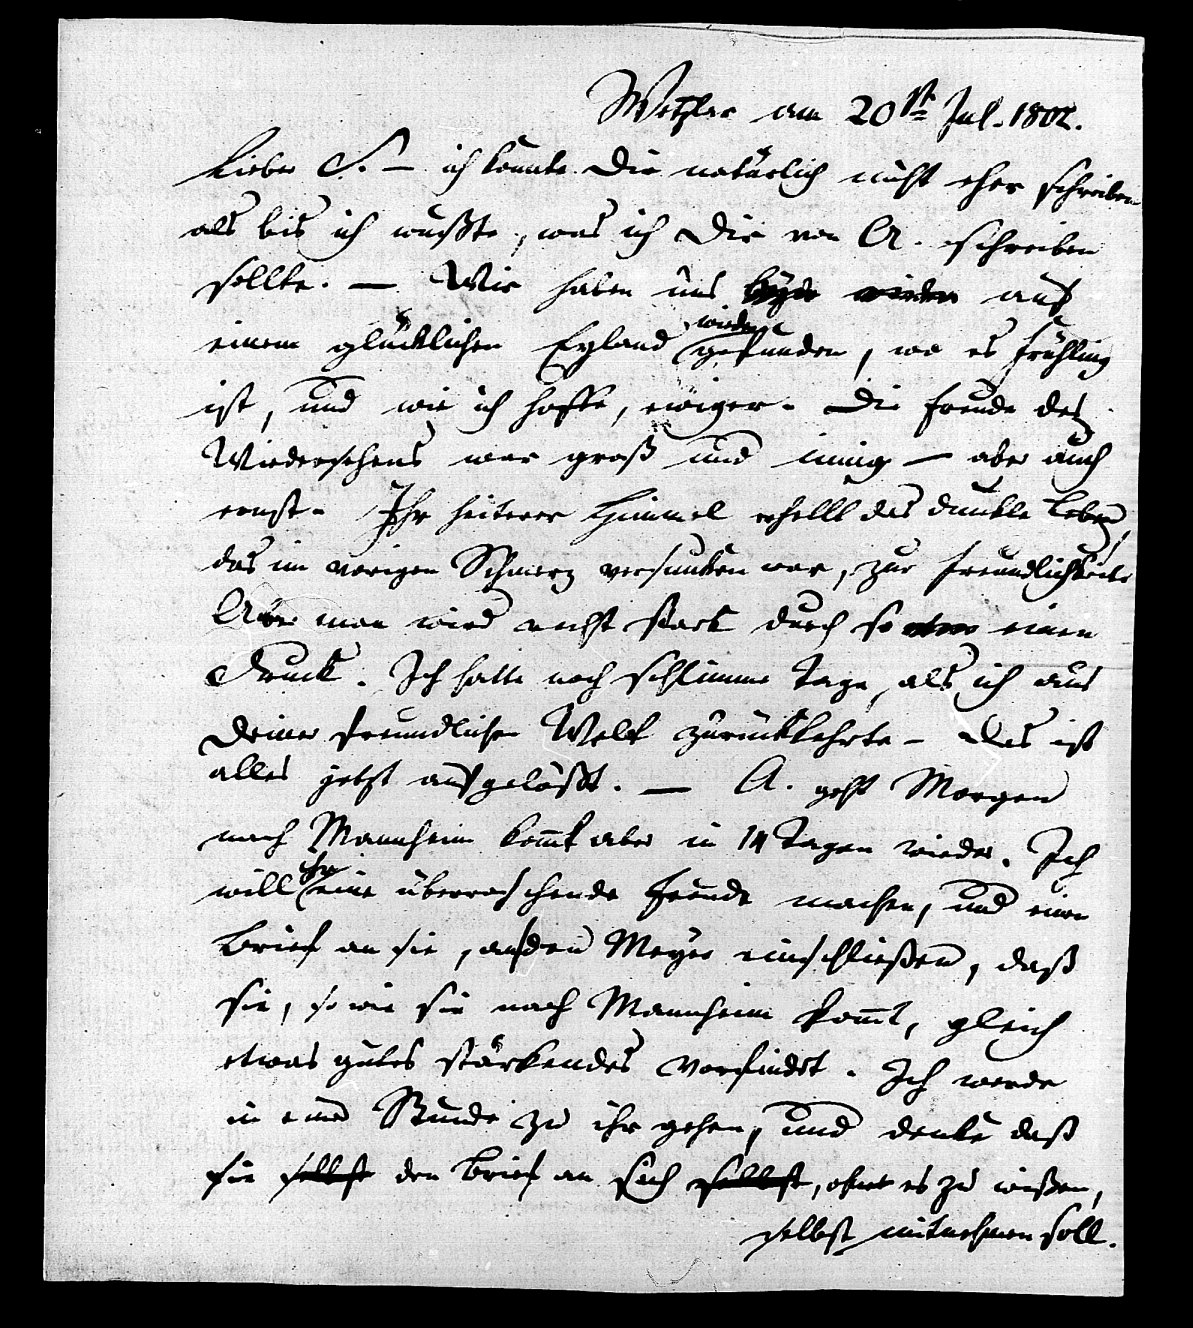 Wetzlar am 20st Jul. 1802.
Lieber S. – ich konnte Dir natürlich nicht eher schreiben
als bis ich wußte, was ich Dir von A. schreiben
sollte. — Wir haben uns auf
einem glücklichen Eyland wieder gefunden, wo es Frühling
ist, und wie ich hoffe, ewiger. Die Freude des
Wiedersehens war groß und innig — aber auch
ernst. Ihr heiterer Himmel erhellt das dunkle Leben,
das im vorigen Schmerz versunken war, zur Freundlichkeit.
Aber man wird recht stark durch so einen
Druck. Ich hatte noch schlimme Tage, als ich aus
Deiner freundlichen Welt zurückkehrte – Das ist
alles jetzt aufgelößt. — A. geht Morgen
nach Mannheim kom̅t aber in 14 Tagen wieder. Ich
will ihr eine überraschende Freude machen, und einen
Brief an sie, an den Meyer einschließen, daß
sie, so wie sie nach Mannheim kom̅t, gleich
etwas gutes stärkendes vorfindet. Ich werde
in einer Stunde zu ihr gehen, und denke daß
sie selbst den Brief an sich selbst, ohne es zu wißen,
selbst mitnehmen soll.